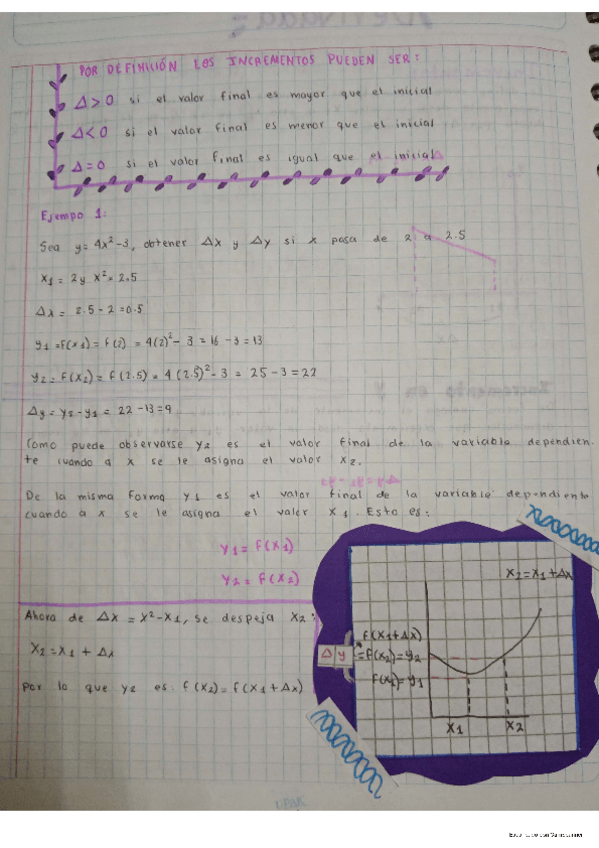 POR DEFINICIÓN LOS INCREMENTOS PUEDEN SER:
Δ > 0 si el valor final es mayor que el inicial
Δ < 0 si el valor final es menor que el inicial
Δ = 0 si el valor final es igual que el inicial
Ejempo 1:
Sea y = 4x² - 3, obtener Δx y Δy si x pasa de 2 a 2.5
x₁ = 2 y x² = 2.5
Δx = 2.5 - 2 = 0.5
y₁ = f(x₁) = f(2) = 4(2)² - 3 = 16 - 3 = 13
y₂ = f(x₂) = f(2.5) = 4(2.5)² - 3 = 25 - 3 = 22
Δy = y₂ - y₁ = 22 - 13 = 9
Como puede observarse y₂ es el valor final de la variable dependien.
te cuando a x se le asigna el valor x₂.
De la misma forma y₁ es el valor final de la variable dependiente
cuando a x se le asigna el valor x₁. Esto es:
y₁ = f(x₁)
y₂ = f(x₂)
Ahora de Δx = x² - x₁, se despeja x₂:
x₂ = x₁ + Δx
por lo que y₂ es: f(x₂) = f(x₁ + Δx)
x₂ = x₁ + Δx
f(x₁ + Δx)
Δy = f(x₂) = y₂
f(x₁) = y₁
x₁ x₂